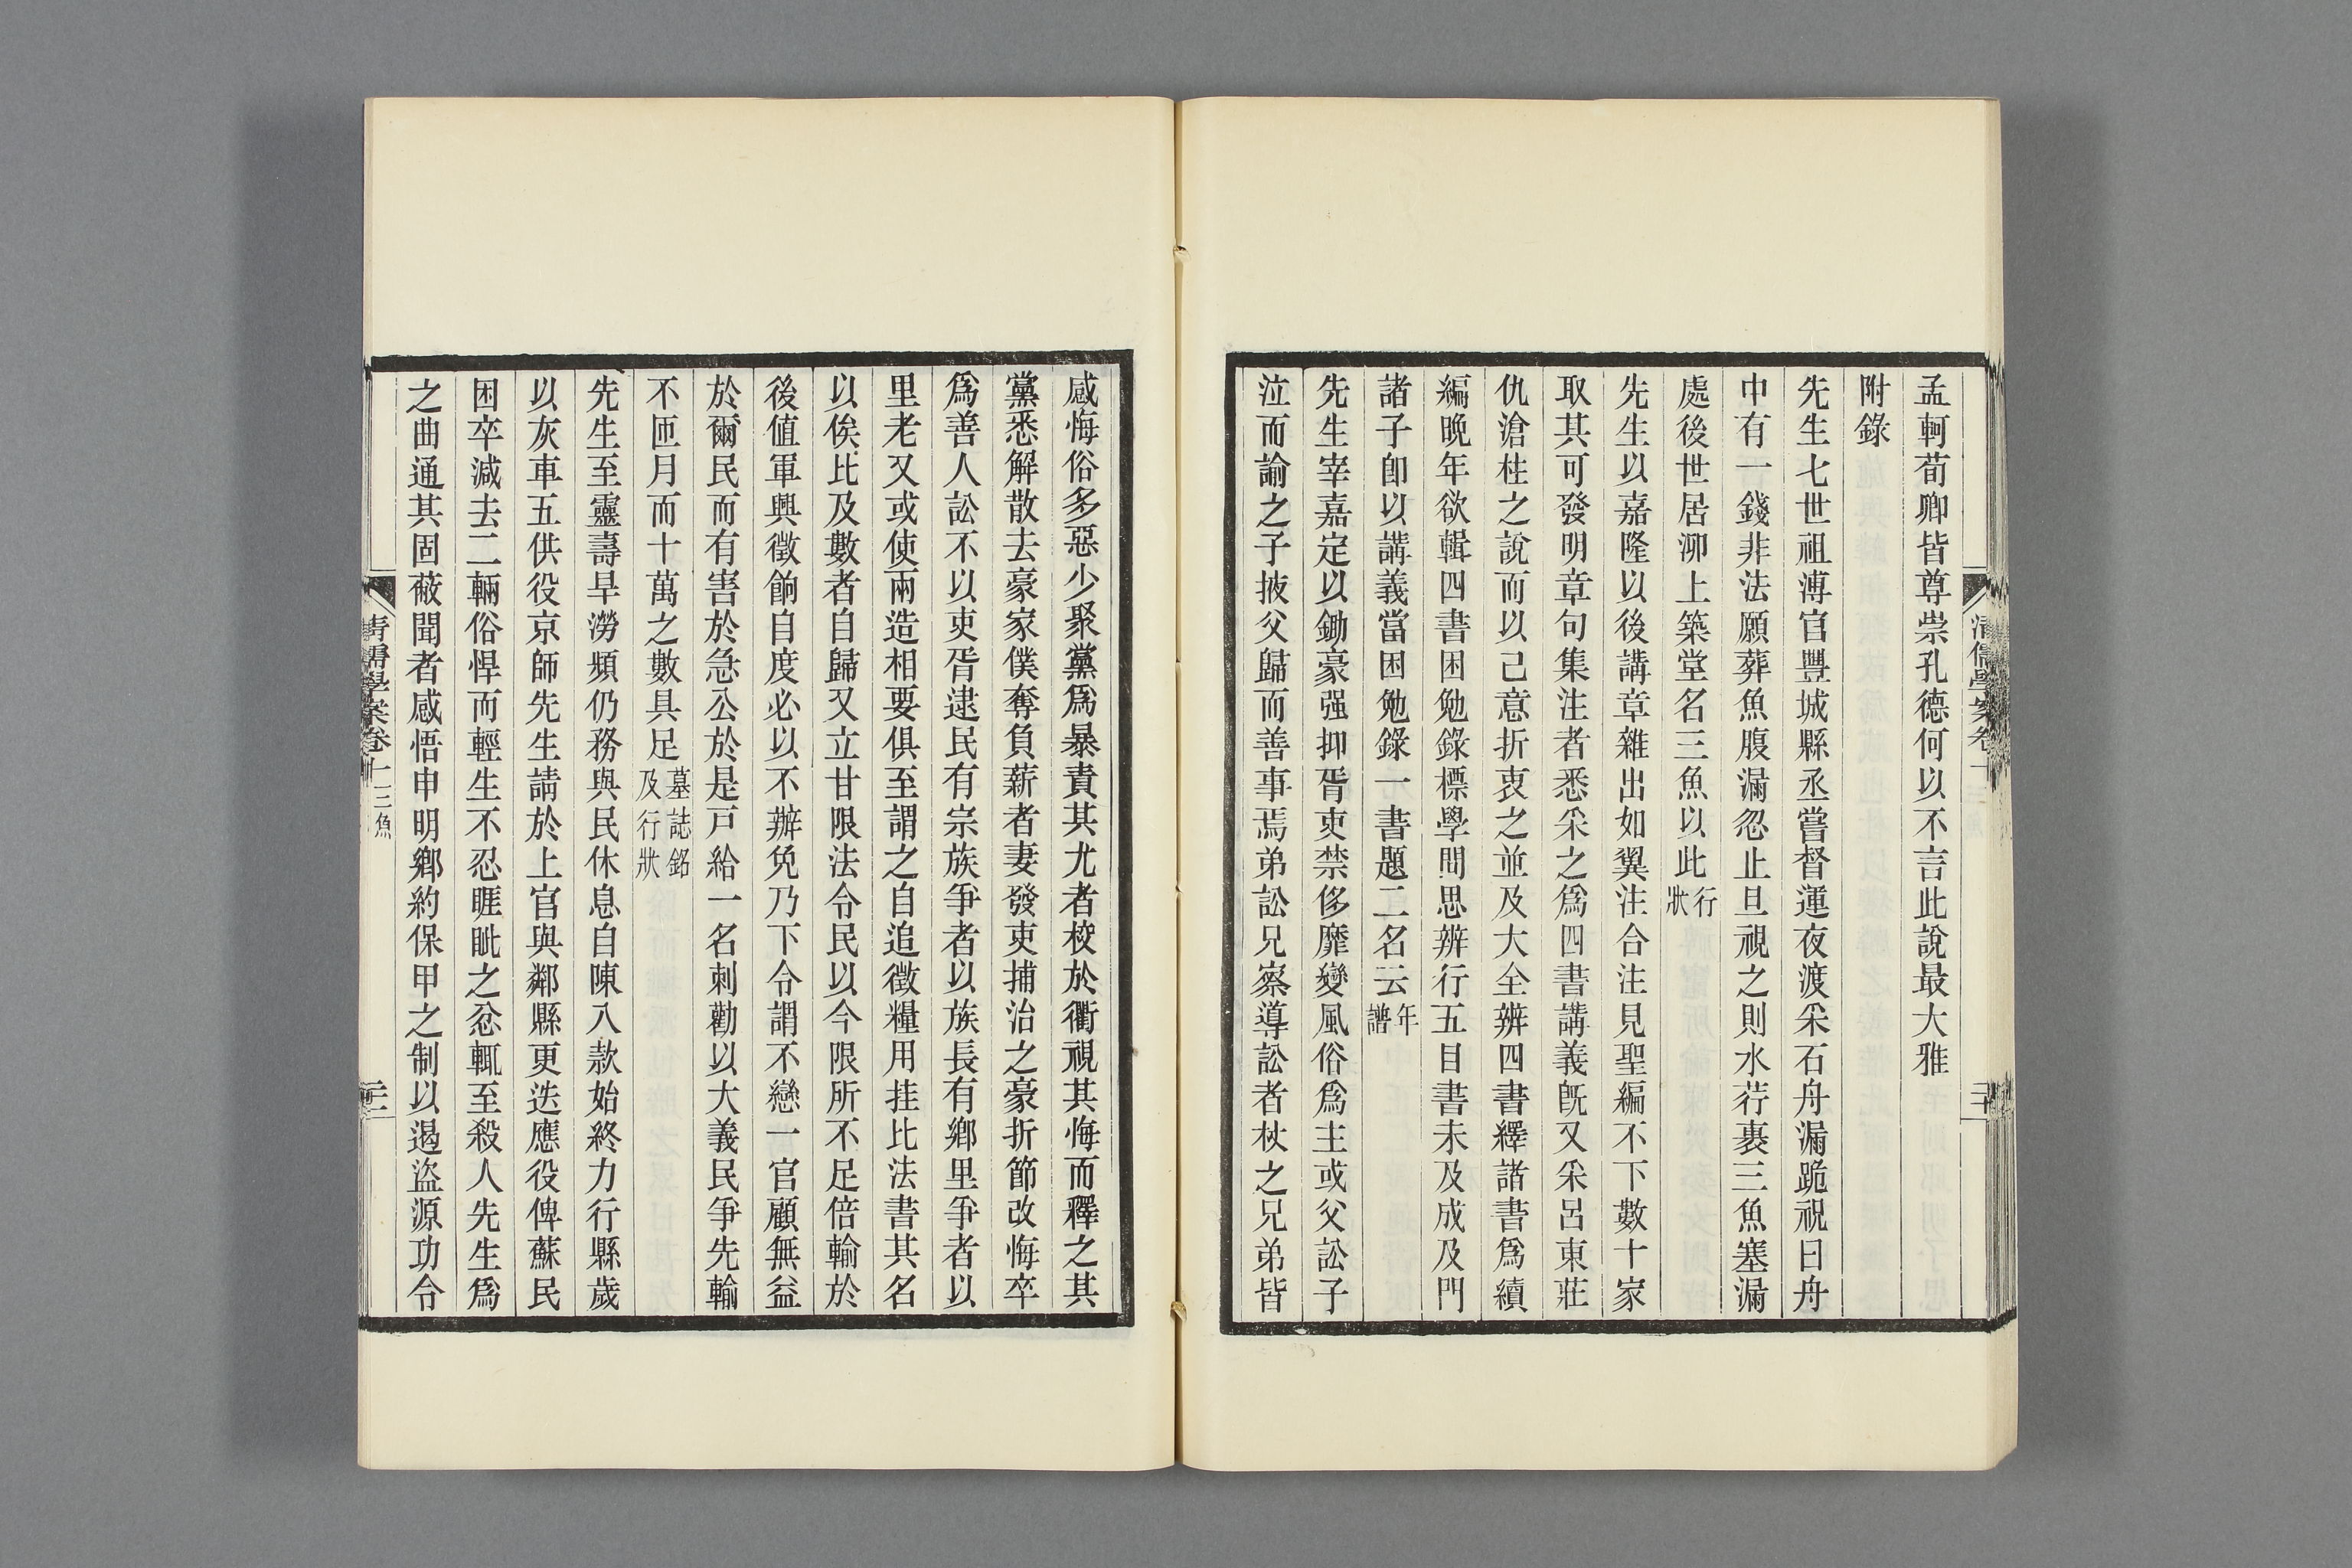 孟軻荀卿皆尊崇孔德何以不言此說最大雅
附錄
先生七世祖溥官豐城縣丞嘗督運夜渡采石舟漏跪祝曰舟
中有一錢非法願葬魚腹漏忽止旦視之則水荇裹三魚塞漏
處後世居泖上築堂名三魚以此行狀
先生以嘉隆以後講章雜出如翼注合注見聖編不下數十家
取其可發明章句集注者悉采之爲四書講義旣又采呂東莊
仇滄柱之說而以己意折衷之並及大全辨四書繹諸書爲續
編晚年欲輯四書困勉錄標學問思辨行五目書未及成及門
諸子卽以講義當困勉錄一書題二名云年譜
先生宰嘉定以鋤豪强抑胥吏禁侈靡變風俗爲主或父訟子
泣而諭之子掖父歸而善事焉弟訟兄察導訟者杖之兄弟皆
感悔俗多惡少聚黨爲暴責其尤者校於衢視其悔而釋之其
黨悉解散去豪家僕奪負薪者妻發吏捕治之豪折節改悔卒
爲善人訟不以吏胥逮民有宗族爭者以族長有鄉里爭者以
里老又或使兩造相要俱至謂之自追徵糧用挂比法書其名
以俟比及數者自歸又立甘限法令民以今限所不足倍輸於
後値軍興徵餉自度必以不辦免乃下令謂不戀一官顧無益
於爾民而有害於急公於是戶給一名刺勸以大義民爭先輸
不匝月而十萬之數具足墓誌銘及行狀
先生至靈壽旱澇頻仍務與民休息自陳入款始終力行縣歲
以灰車五供役京師先生請於上官與鄰縣更迭應役俾蘇民
困卒減去二輛俗悍而輕生不忍睚眦之忿輒至殺人先生爲
之曲通其固蔽聞者感悟申明鄉約保甲之制以遏盜源功令
清儒學案卷十 三魚